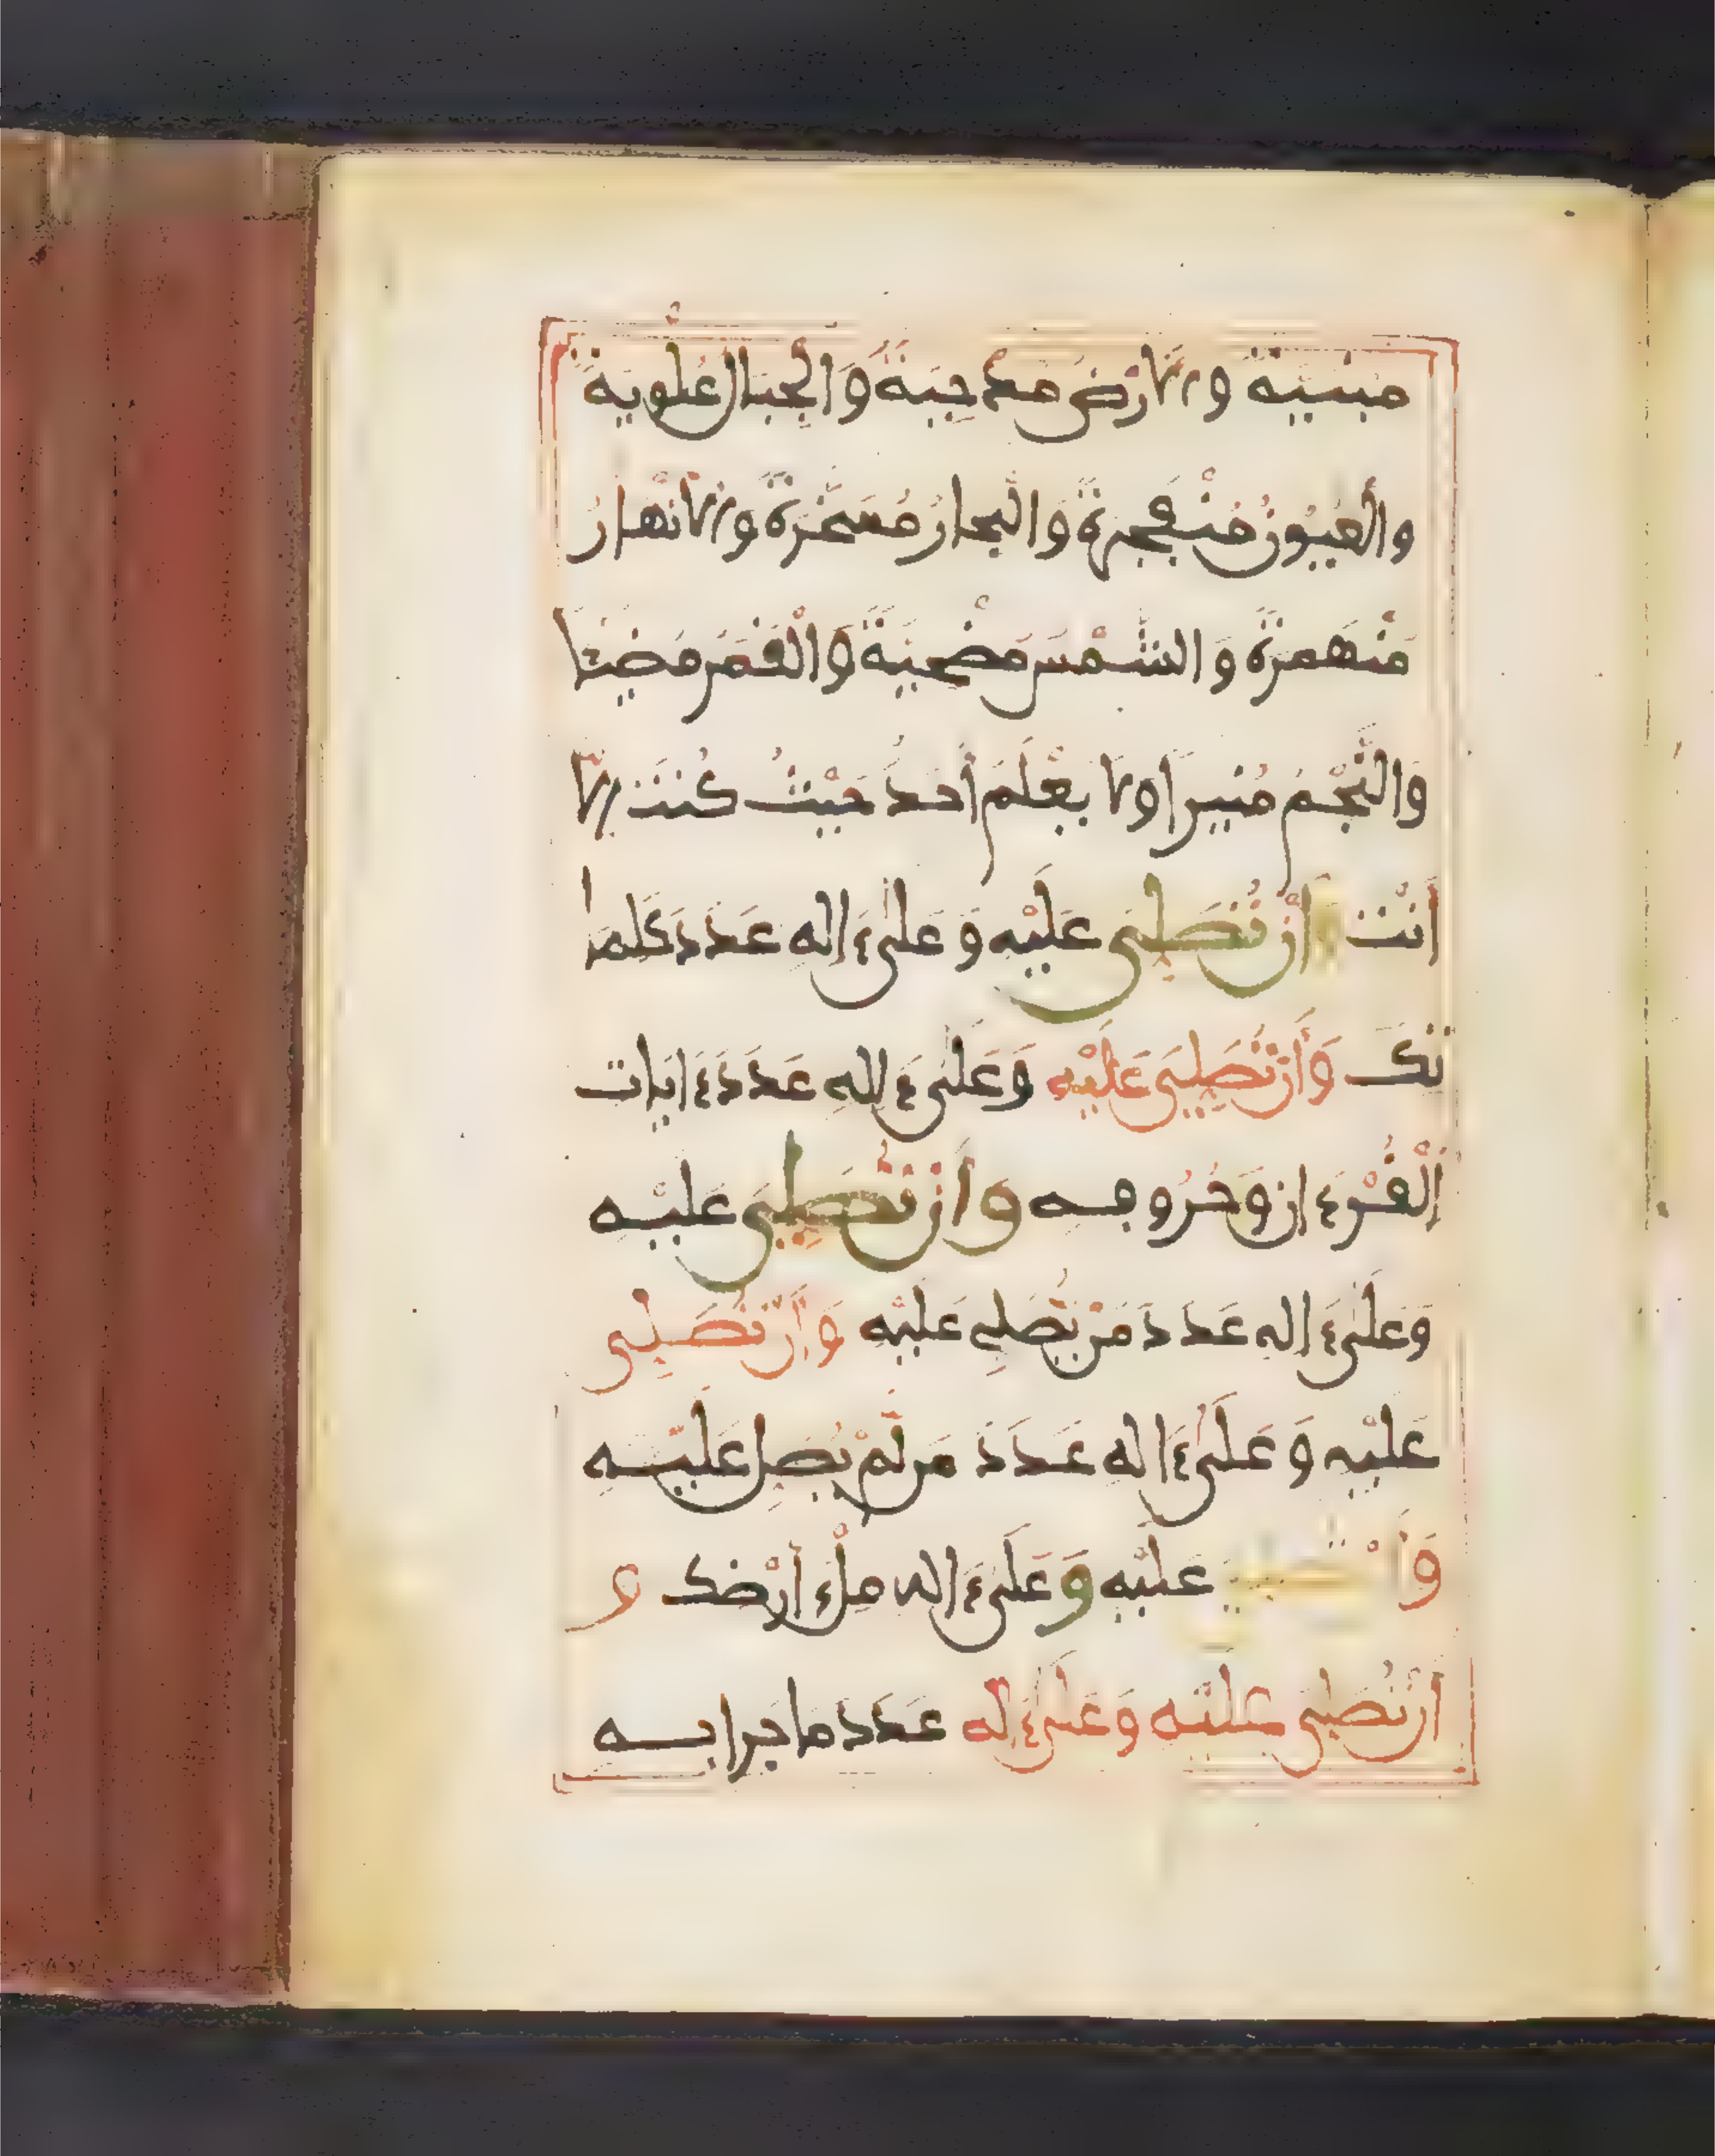 مبنية والارض مدحية والجبال علوية
والعيون منفجرة والبحار مسخرة والانهار
منهمرة والشمس مضحية والقمر مضيئا
والنجم منيرا ولا يعلم أحد حيث كنت إلا
أنت وأن تصلي عليه وعلى ءاله عدد كلما
تك وأن تصلي عليه وعلى ءاله عدد ءايات
القرءان وحروفه وأن تصلي عليه
وعلى ءاله عدد من يصلي عليه وأن تصلي
عليه وعلى ءاله عدد من لم يصل عليه
وأن تصلي عليه وعلى ءاله ملء أرضك و
أن تصلي عليه وعلى ءاله عدد ما جرا به